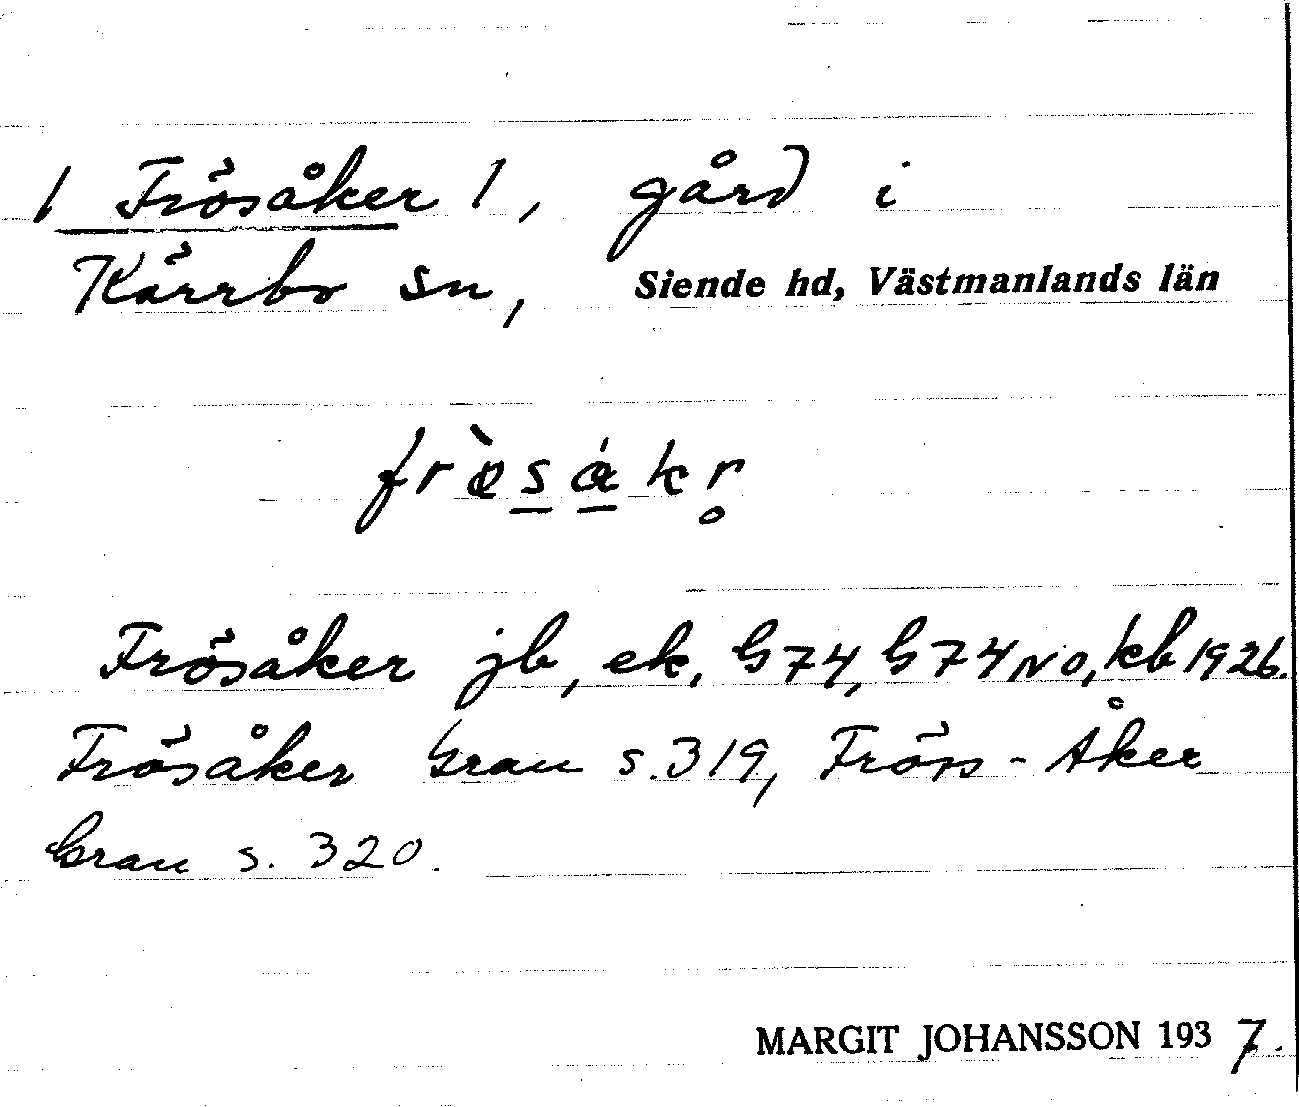 / Frösåker /, gård i
Kärrbo sn, Siende hd, Västmanlands län
frø̀såkr̥
Frösåker jb, ek, G74, G74NO, kb 1926.
Frösåker Grau s. 319, Frös-Åker
Grau s. 320.
MARGIT JOHANSSON 1937.